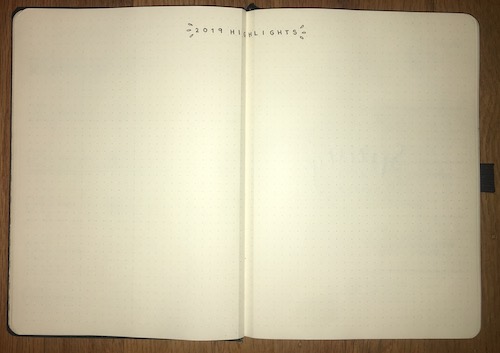 2019 HIGHLIGHTS